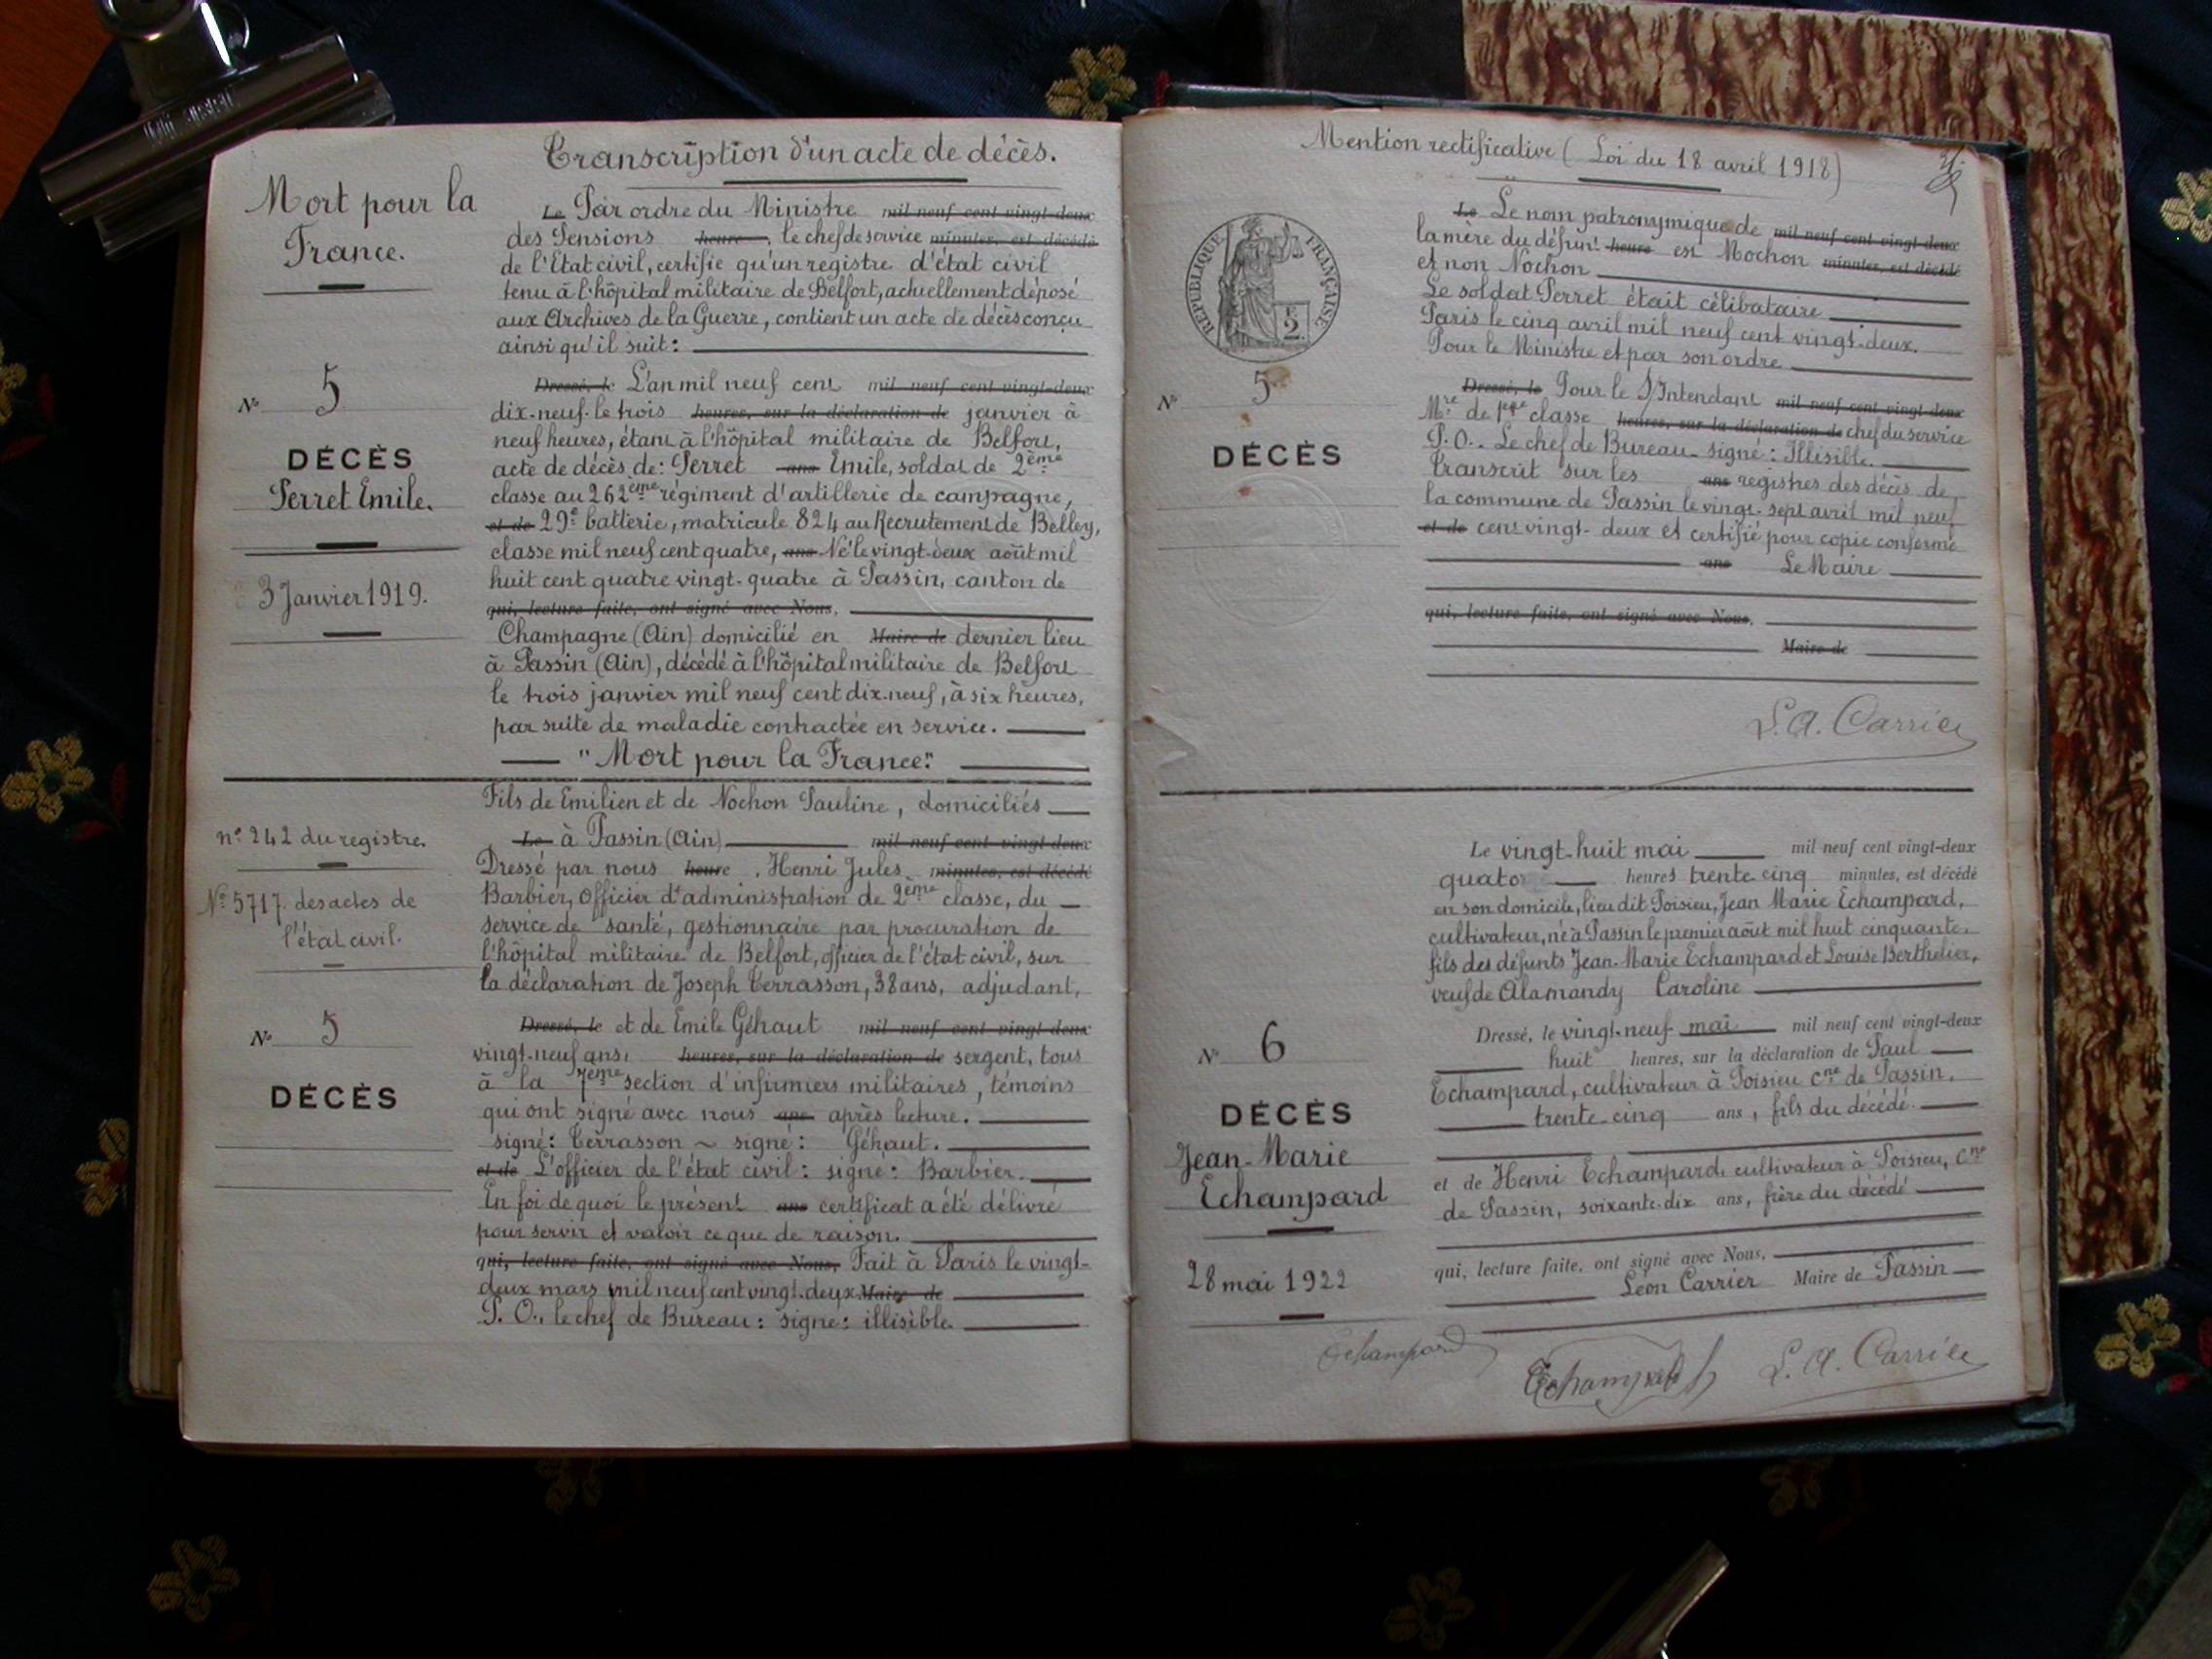 Transcription d'un acte de décès.
Mort pour la
France.
Le Par ordre du Ministre mil neuf cent vingt-deux
des Pensions heure, le chef de service minutes, est décédé
de l'Etat civil, certifie qu'un registre d'état civil
tenu à l'hôpital militaire de Belfort, actuellement déposé
aux Archives de la Guerre, contient un acte de décès conçu
ainsi qu'il suit:
No 5
DÉCÈS
Perret Emile.
3 Janvier 1919.
Dressé, le L'an mil neuf cent mil neuf cent vingt-deux
dix-neuf le trois heures, sur la déclaration de janvier à
neuf heures, étant à l'hôpital militaire de Belfort,
acte de décès de: Perret ans Emile, soldat de 2ème
classe au 262ème régiment d'artillerie de campagne,
et de 29e batterie, matricule 824 au Recrutement de Belley,
classe mil neuf cent quatre, ans Né le vingt-deux août mil
huit cent quatre vingt-quatre à Passin, canton de
qui, lecture faite, ont signé avec Nous.
Champagne (Ain) domicilié en Maire de dernier lieu
à Passin (Ain), décédé à l'hôpital militaire de Belfort
le trois janvier mil neuf cent dix-neuf, à six heures,
par suite de maladie contractée en service.
"Mort pour la France"
Fils de Emilien et de Nochon Pauline, domiciliés
n° 242 du registre.
N° 5717 des actes de
l'état civil.
No 5
DÉCÈS
Le à Passin (Ain) mil neuf cent vingt-deux
Dressé par nous heure, Henri Jules minutes, est décédé
Barbier, Officier d'administration de 2ème classe, du
service de santé, gestionnaire par procuration de
l'hôpital militaire de Belfort, officier de l'état civil, sur
la déclaration de Joseph Terrasson, 38 ans, adjudant,
Dressé, le et de Emile Géhaut mil neuf cent vingt-deux
vingt-neuf ans, heures, sur la déclaration de sergent, tous
à la 7ème section d'infirmiers militaires, témoins
qui ont signé avec nous ans après lecture.
signé: Terrasson ~ signé: Géhaut.
et de L'officier de l'état civil: signé: Barbier.
En foi de quoi le présent ans certificat a été délivré
pour servir et valoir ce que de raison.
qui, lecture faite, ont signé avec Nous, Fait à Paris le vingt-
deux mars mil neuf cent vingt-deux Maire de
P. O., le chef de Bureau: signé: illisible.
Mention rectificative (Loi du 18 avril 1918)
REPUBLIQUE FRANÇAISE
No 5
DÉCÈS
Le Le nom patronymique de mil neuf cent vingt-deux
la mère du défunt heure est Mochon minutes, est décédé
et non Nochon
Le soldat Perret était célibataire
Paris le cinq avril mil neuf cent vingt-deux.
Pour le Ministre et par son ordre
Dressé, le Pour le S/Intendant mil neuf cent vingt-deux
Mre de 1ère classe heures, sur la déclaration de chef du service
P.O. Le chef de Bureau signé: Illisible.
Transcrit sur les ans registres des décès de
la commune de Passin le vingt-sept avril mil neuf
et de cent vingt-deux et certifié pour copie conforme
ans Le Maire
qui, lecture faite, ont signé avec Nous.
Maire de
L. A. Carrier
No 6
DÉCÈS
Jean-Marie
Echampard
28 mai 1922
Le vingt-huit mai mil neuf cent vingt-deux
heures trente cinq minutes, est décédé
en son domicile, lieu dit Poisieu, Jean Marie Echampard,
cultivateur, né à Passin le premier août mil huit cinquante,
fils des défunts Jean-Marie Echampard et Louise Berthelier,
veuf de Alamandy Caroline
Dressé, le vingt-neuf mai mil neuf cent vingt-deux
huit heures, sur la déclaration de Paul
Echampard, cultivateur à Poisieu Cne de Passin,
trente cinq ans, fils du décédé.
et de Henri Echampard, cultivateur à Poisieu, Cne
de Passin, soixante-dix ans, frère du décédé
qui, lecture faite, ont signé avec Nous,
Léon Carrier Maire de Passin
Echampard Echampard L. A. Carrier